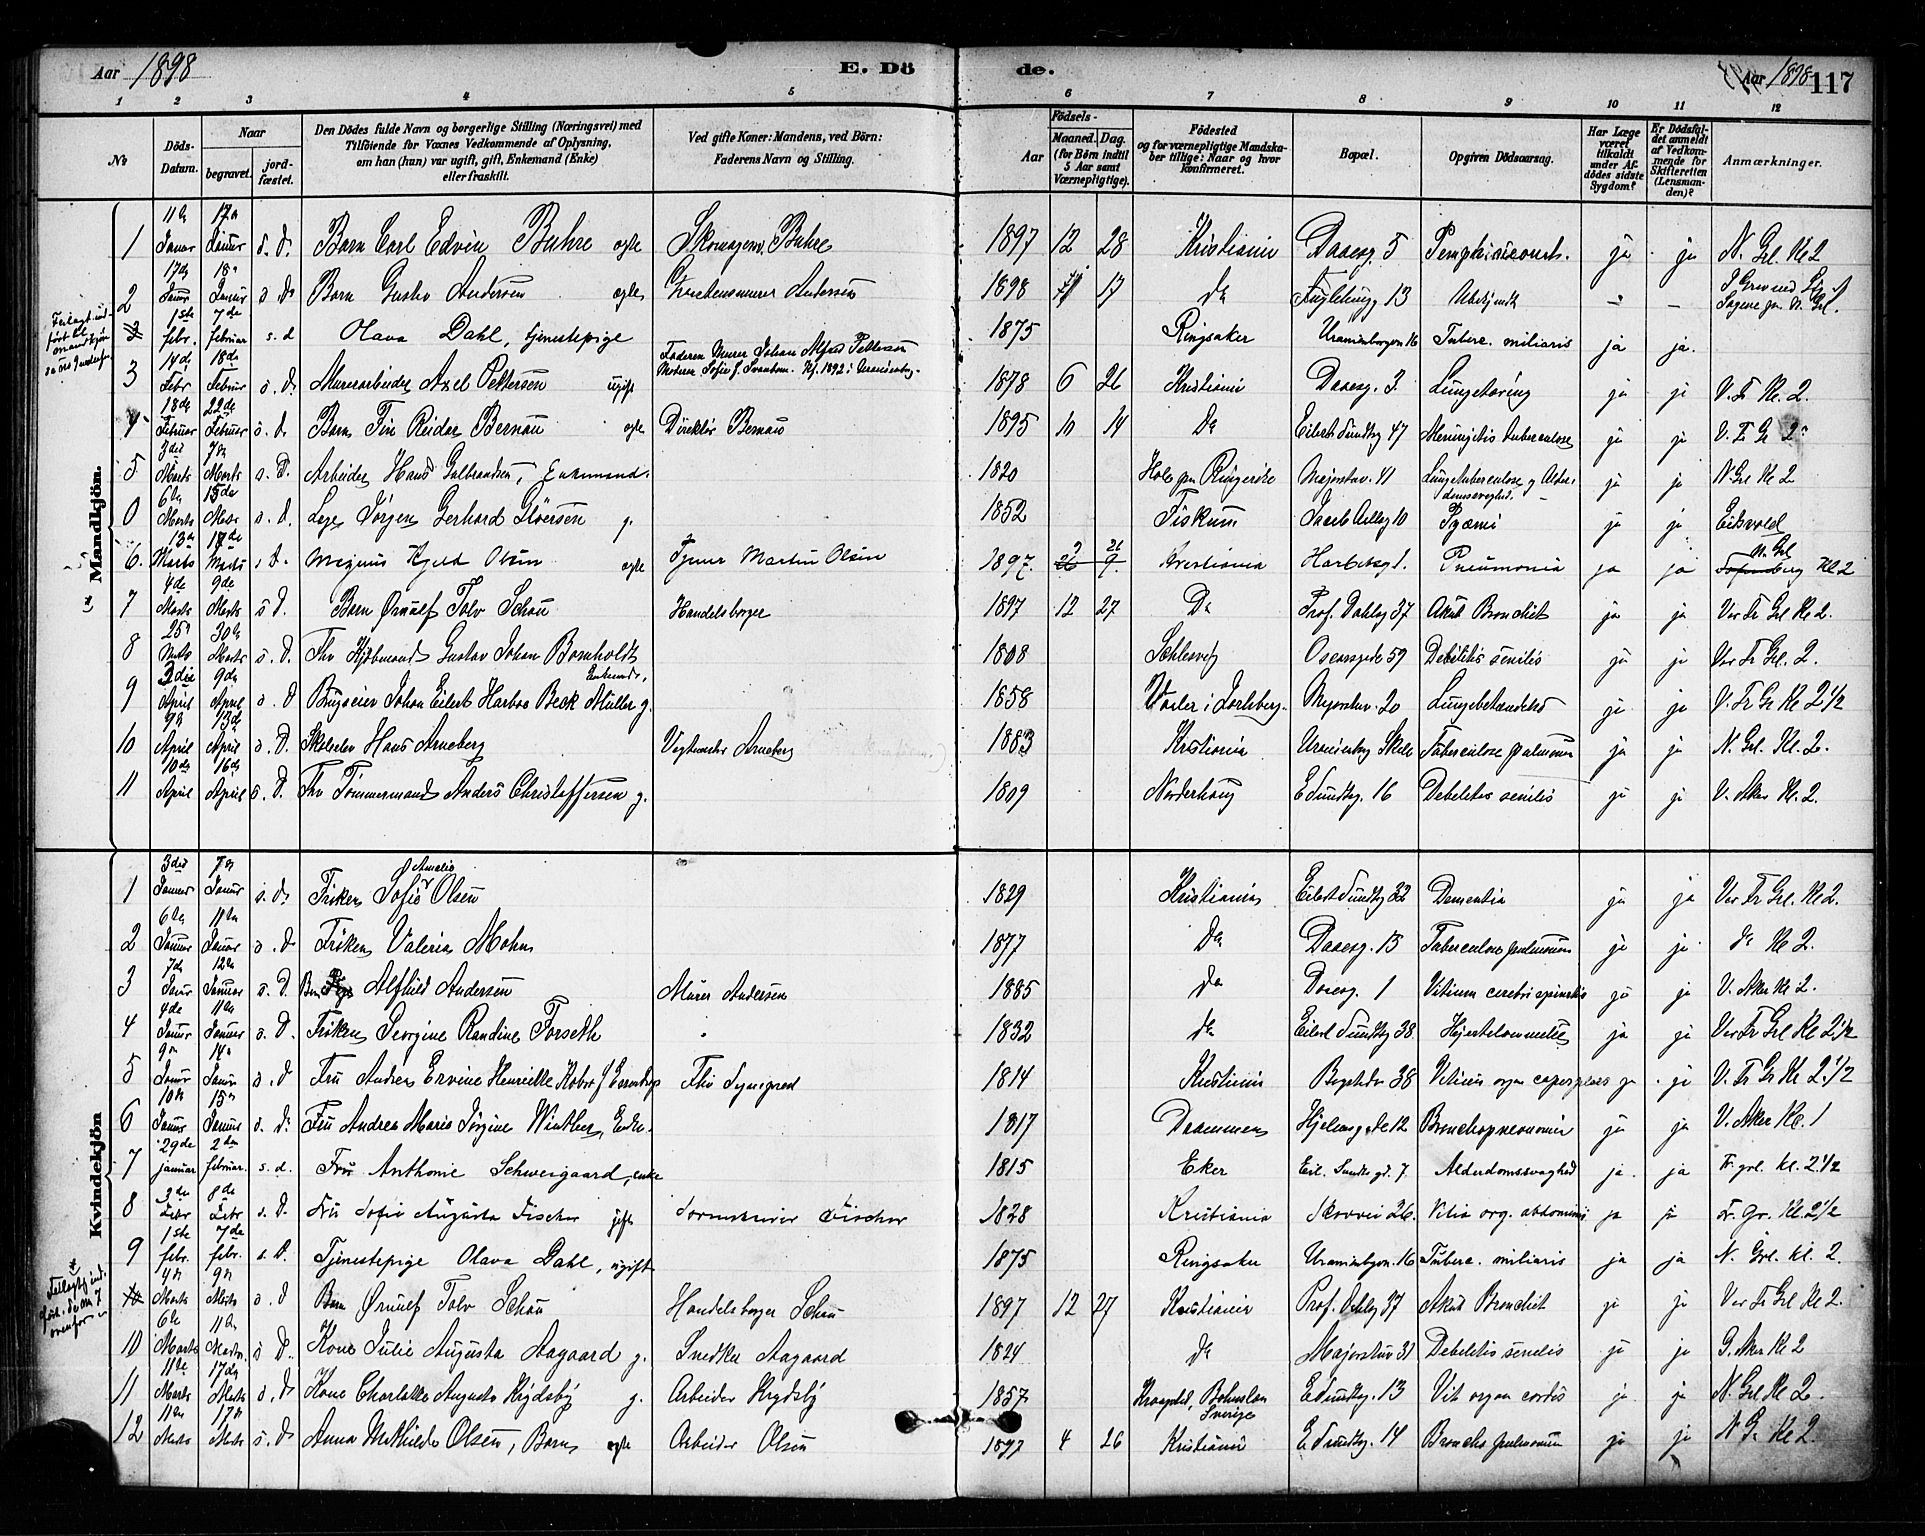 Aar 1898
E. Dö de.
Aar 1898 117
1 2 3 4 5 6 7 8 9 10 11 12
No
Döds-Datum.
Naar
begravet.
jordfæstet.
Den Dödes fulde Navn og borgerlige Stilling (Næringsvei) med
Tilföiende for Voxnes Vedkommende af Oplysning,
om han (hun) var ugift, gift, Enkemand (Enke)
eller fraskilt.
Ved gifte Koner: Mandens, ved Börn:
Faderens Navn og Stilling.
Födsels-
Aar
Maaned. Dag.
(for Börn indtil
5 Aar samt
Værnepligtige).
Födested
og for værnepligtige Mandskaber tillige: Naar og hvor
konfirmeret.
Bopæl.
Opgiven Dödsaarsag.
Har Læge
været
tilkaldt
under Afdödes sidste
Sygdom?
Er Dödsfaldet anmeldt
af Vedkommende for
Skifteretten
(Lensmanden)?
Anmærkninger.
Mandkjön.
1 11te Januar 17de Januar s. D. Barn Carl Edvin Buhre ægte Skomagerm. Buhre 1897 12 28 Kristiania Daaesg. 5 ja ja N. Grl. Kl 2
2 17de Januar 18de Januar s Ds Barn Gustav Andersen ægte Andersen 1898 17 Do Fuglehaugg 13 Ubekjendt – –
3 1ste febr. 7de februar s. d Olava Dahl, tjenestepige 1875 Ringsaker Uranienborgvn 16 Tuberc. miliaris ja ja.
Faderen Murer Johan Alfred Pettersen
3 14de Febr 18de Februar s. D. Murerarbeider Axel Pettersen ugift 1878 6 26 Kristiania Daaesg. 3 Lungetæring ja ja V. Fr Kl. 2.
4 18de Februar 22de Februar s. D. Barn Fin Reidar Bernau ægte Direktør Bernau 1895 10 14 Do Eilert Sundtsg 47 Meningitis tuberculosa ja ja V. Fr Gr 2
5 3die Marts 7de Marts s. D. Arbeider Hans Gulbrandsen, Enkemand. 1820 Hole paa Ringerike Majorstuv. 41 Lungetuberculose og Alderdomssvaghed. ja ja N Grl Kl 2
0 6te Marts 15de Marts s. D. Læge Jørgen Gerhard Gløersen g. 1852 Fiskum Jacob Aallsg 10 Pyæmi ja ja Eidsvold
6. 13de Marts 17de Marts s. D. Magnus Kjeld Olsen ægte Martin Olsen 1897. 9 26 Kristiania Harbitzsg 1. Pneumonia ja ja N. Grl Kl 2
7 4de Marts 9de Marts s D. Barn Ørnulf Tolv Schou Handelsborger 1897 12 27 Do Prof. Dahlsg 37 Akut Bronchit ja ja Vor Fr Grl Kl 2.
8 25de Marts 30te Marts s. D. Fhv Kjøbmand Gustav Johan Bomholdt Enkemand, 1808 Schlesvig Oscarsgade 59 Debilitas senilis ja ja Vor Fr Grl. 2.
9 3die April 9de April s. D Brugseier Johan Eilert Harboe Beck Müller g. 1858 Majorstuv. 20 Lungebetændelse ja ja V. Fr Gr Kl 2 1/2
10 9de April 13de April s. D. Skoleelev Hans Arneberg Arneberg 1883 Kristiania Tuberculose pulmonum ja ja N. Grl. Kl. 2.
11 10de April 16de April s. D. Fhv Tømmermand Anders Christoffersen g. 1809 Norderhoug E Sundtsg. 16 Debilitas senilis ja ja V. Aker Kl. 2.
Kvindekjön
1 3die Januar 7de Januar s. D. Frøken Sofie Amalie Olsen 1829 Kristiania Eilert Sundtsg 32 Dementia ja ja Vor Fr Grl. Kl 2.
2 6te Januar 11te Januar s. D Frøken Valeria Mohn 1877 Do Daaesg. 13 Tuberculose pulmonum ja ja do Kl 2.
3 7de Januar 12te Januar s. D. Barn Alfhild Andersen Murer Andersen 1885 Do Daaesg. 1 Vitium cerebri spinalis ja ja V. Aker Kl 2.
4 4de Januar 11te Januar s. D. Frøken Georgine Randine Forseth 1832 Do Eilert Sundtsg 38. Hjertelammelse ja ja Vor Fr Grl Kl 2 1/2
5 9de Januar 14de Januar s. D Fru Andrea Ervine Henriette 1814 Kristiania 38 ja ja V. Fr Gr Kl 2 1/2
6 10de Januar 15de Januar s. D. Fru Andrea Marie Jørgine Winther, Enke. 1817 Drammen Hjelmsgade 12 Bronchopneumonie ja ja V. Aker Kl. 1
7 29de januar 2den februar. s. d. Fru Anthonie Schweigaard, enke 1815 Eker Eil. Sundts gd. 7 Alderdomssvaghed ja ja Fr. grl. kl. 2 1/2
8 3de Febr 8de Febr s. D. Fru Sofie Augusta Fischer gift Fischer 1828 Kristiania Skovvei 26. Vitia org. abdominis ja ja Fr. Gr. Kl. 2 1/2
9 1ste febr. 7de febr. s. D. Tjenestepige Olava Dahl, ugift 1875 Ringsaker Uranienborgvn. 16 Tuberc. miliaris ja ja N. Grl. kl. 2
10 4de Marts 9de Marts s. D Barn Ørnulf Tolv Schou Handelsborger Schou 1897 12 27 Kristiania Prof. Dahlsg 37 Akut Bronchit ja ja Vor Fr Grl Kl 2.
10 6te Marts 11te Marts s D. Kone Julie Augusta Aagaard g. Snedker Aagaard 1824 Do Majorstuv 31 Debilitas senilis ja ja G. Aker Kl 2
11 11te Marts 17de Marts s. D. Kone Charlotte Augusta Krydsby g. Arbeider Krydsby 1857 Bohuslen Sverige E Sundtsg. 13 Vit organ cordis ja ja N. Grl Kl 2.
12 11te Marts 17de Marts s. D Anna Mathilde Olsen, Barn ægte Arbeider Olsen 1897 4 26 Kristiania E Sundtsg. 14 ja ja N Gr Kl 2.